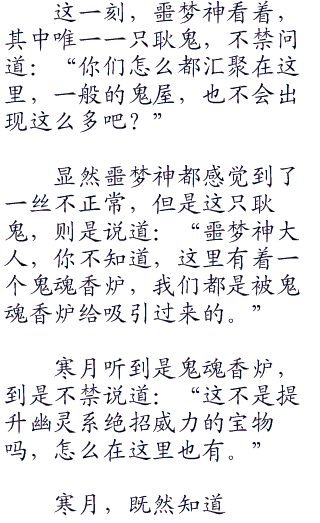 这一刻，噩梦神看着，
其中唯一一只耿鬼，不禁问
道：“你们怎么都汇聚在这
里，一般的鬼屋，也不会出
现这么多吧？”
显然噩梦神都感觉到了
一丝不正常，但是这只耿
鬼，则是说道：“噩梦神大
人，你不知道，这里有着一
个鬼魂香炉，我们都是被鬼
魂香炉给吸引过来的。”
寒月听到是鬼魂香炉，
到是不禁说道：“这不是提
升幽灵系绝招威力的宝物
吗，怎么在这里也有。”
寒月，既然知道